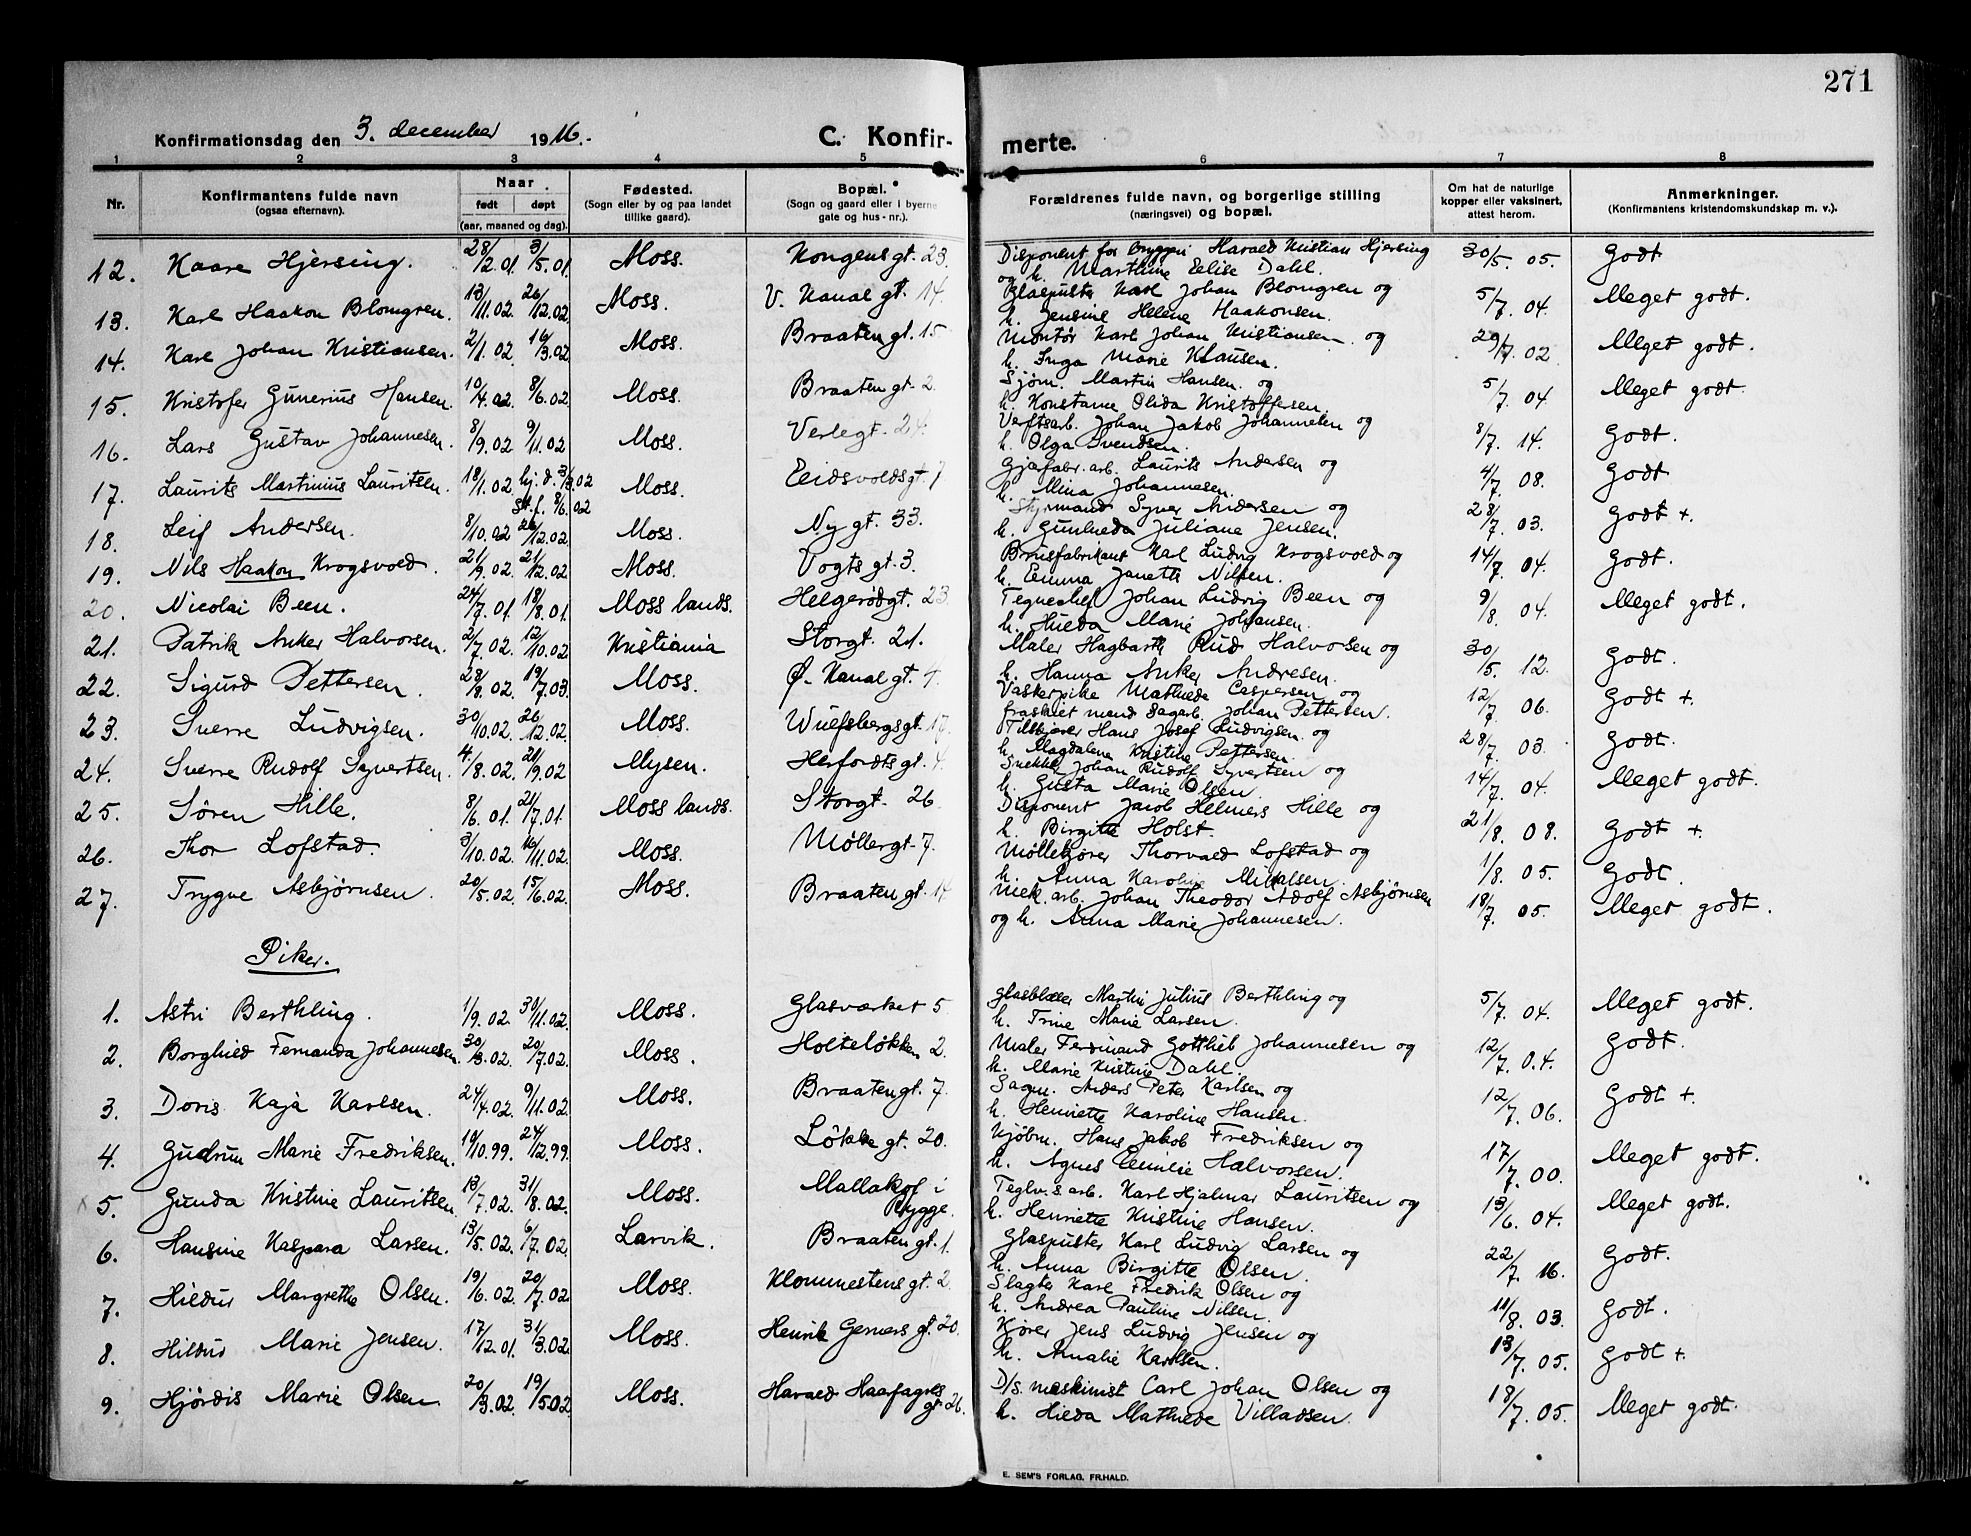 271
Konfirmationsdag den 3. december 1916.
C. Konfirmerte.
1 2 3 4 5 6 7 8
Nr.
Konfirmantens fulde navn
(ogsaa efternavn).
Naar
født døpt
(aar, maaned og dag).
Fødested.
(Sogn eller by og paa landet
tillike gaard).
Bopæl.
(Sogn og gaard eller i byerne
gate og hus-nr.).
Forældrenes fulde navn, og borgerlige stilling
(næringsvei) og bopæl.
Om hat de naturlige
kopper eller vaksinert,
attest herom.
Anmerkninger.
(Konfirmantens kristendomskundskap m. v.).
12. Kaare Hjersing. 28/12.01. 3/5.01. Moss. Kongens gt. 23. Disponent for bryggri Harald Kristian Hjersing 30/5. 05. Godt
og h. Marthine Elise Dahl.
13. Karl Haakon Blomgren. 13/11.02. 26/12.02. Moss. V. Kanal gt. 14. Glaspuster Karl Johan Blomgren og 5/7. 04. Meget godt.
h. Jensine Helene Haakonsen.
14. Karl Johan Kristiansen. 2/1.02. 16/3.02. Moss. Braaten gt. 15. Montør Karl Johan Kristiansen og 29/7. 02 Meget godt.
h. Inga Marie Klausen.
15. Kristofer Gunerius Hansen. 10/4.02. 8/6.02. Moss. Braaten gt. 2. Sjøm. Martin Hansen og 5/7. 04. Meget godt.
h. Konstanse Olida Kristoffersen.
16. Lars Gustav Johannesen. 8/9.02. 9/11.02 Moss. Verlegt. 24. Verftsarb. Johan Jakob Johannesen og 8/7. 14. Godt.
h. Olga Svendsen.
17. Laurits Martinius Lauritsen. 18/1.02. hj. d. 3/3.02 Moss. Eidsvolds gt. 7 Gjærfabr. arb. Laurits Andersen og 4/7. 08. Godt
st. f. 8/6.02 h. Mina Johannesen.
18. Leif Andersen. 8/10.02 26/12.02. Moss. Ny gt. 33. Styrmand Syver Andersen og 28/7. 03. Godt +.
h. Gunhilda Juliane Jensen.
19. Nils Haakon Krogsvold. 21/9.02. 21/12.02. Moss. Vogts gt. 3. Brusfabrikant Karl Ludvig Krogsvold og 14/7. 04. Godt.
h. Emma Janette Nilsen.
20. Nicolai Been. 24/7.01. 18/8.01. Moss lands. Helgerødgt. 23 Tegnechef Johan Ludvig Been og 9/8. 04. Meget godt.
h. Hilda Marie Johansen.
21. Patrik Anker Halvorsen. 2/7.02. 12/10.02. Kristiania Storgt. 21. Maler Hagbarth Rud Halvorsen og 30/5. 12. Godt.
h. Hanna Anker Andresen.
22. Sigurd Pettersen. 28/8.02. 19/7.03. Moss. Ø. Kanal gt. 4. Vaskerpike Mathilde Caspersen og 12/7. 06. Godt +
fraskilt mand Sagarb. Johan Pettersen.
23. Sverre Ludvigsen. 30/10.02. 26/12.02. Moss. Wulfsbergsgt. 17. Hans Josef Ludvigsen og 28/7. 03. Godt.
h. Magdalene Kristine Pettersen.
24. Sverre Rudolf Syvertsen. 4/8.02. 21/9.02 Mysen. Herfordts gt. 4. Snekker Johan Rudolf Syvertsen og 14/7. 04. Meget godt.
h. Gusta Marie Olsen.
25. Søren Hille. 8/6.01. 21/7.01. Moss lands. Storgt. 26. Disponent Jacob Helmers Hille og 21/8. 08. Godt +.
h. Birgitte Holst.
26. Thor Lofstad. 3/10.02. 16/11.02. Moss. Møllergt. 7. Møllekjører Thorvald Lofstad og 1/8. 05. Godt.
h. Anna Karoline Mikalsen.
27. Trygve Asbjørnsen. 20/5.02. 15/6.02. Moss. Braaten gt. 14 Mek. arb. Johan Theodor Adolf Asbjørnsen 18/7. 05. Meget godt.
og h. Anna Marie Johannesen.
Piker.
1. Astri Berthling. 1/9.02. 30/11.02. Moss. Glasværket 5. Glasblæser Martin Julius Berthling og 5/7. 04. Meget godt.
h. Trine Marie Larsen.
2. Borghild Fernanda Johannesen. 30/3.02. 20/7.02. Moss. Holteløkken 2. Maler Ferdinand Gottlieb Johannesen og 12/7. 04. Godt.
h. Marie Kristine Dahl.
3. Doris Kaja Karlsen. 24/4.02. 9/11.02. Moss. Braaten gt. 7. Sagm. Anders Peter Karlsen og 12/7. 06. Godt +.
h. Henriette Karoline Hansen.
4. Gudrun Marie Fredriksen. 19/10.99. 24/12.99. Moss. Løkke gt. 20. Kjøbm. Hans Jakob Fredriksen og 17/7. 00. Meget godt.
h. Agnes Emilie Halvorsen.
5. Gunda Kristine Lauritsen. 13/7.02. 31/8.02. Moss. Mallakof i Teglv.s arb. Karl Hjalmar Lauritsen og 13/6. 04. Meget godt.
Rygge. h. Henriette Kristine Hansen.
6. Hansine Kaspara Larsen. 13/5.02. 6/7.02. Larvik. Braaten gt. 1. Glaspuster Karl Ludvig Larsen og 22/7. 16. Godt.
h. Anna Birgitte Olsen.
7. Hildur Margrethe Olsen. 19/6.02. 20/7.02. Moss. Klommestens gt. 2 Slagter Karl Fredrik Olsen og 11/8. 03. Godt.
h. Andrea Pauline Nilsen.
8. Hildur Marie Jensen. 17/12.01. 31/3.02. Moss. Henrik Gerners gt. 20. Kjører Jens Ludvig Jensen og 13/7. 05. Godt +.
h. Amalie Karlsen.
9. Hjørdis Marie Olsen. 20/3.02. 19/5.02. Moss. Harald Haafagres D/s. maskinist Carl Johan Olsen og 18/7. 05. Meget godt.
gt. 26. h. Hilda Mathilde Villadsen.
E. SEM'S FORLAG, FR.HALD.